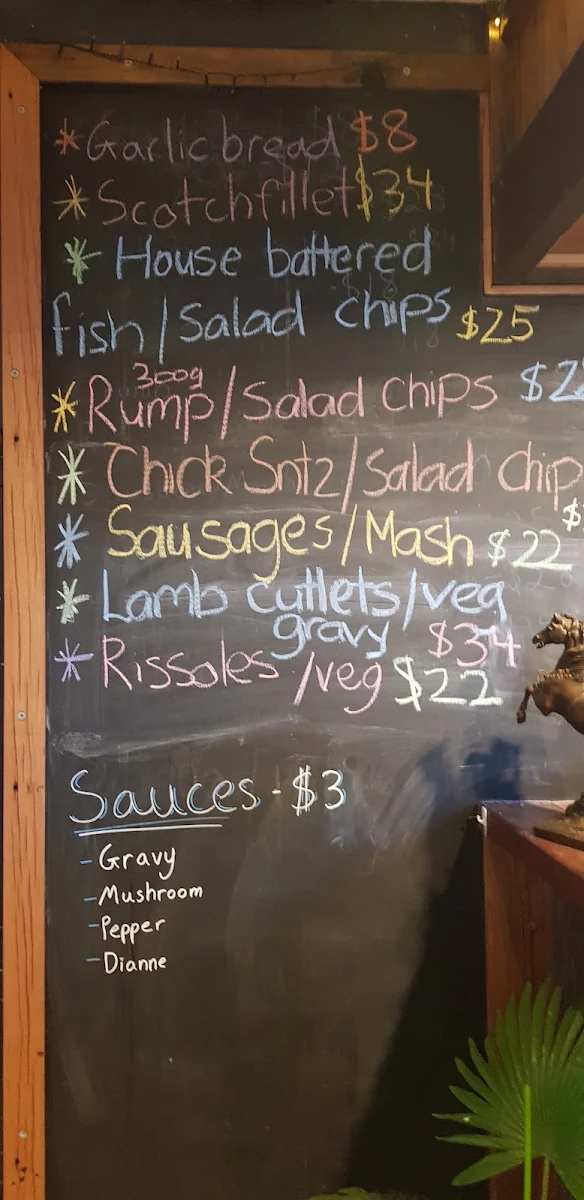 * Garlic bread $8
* Scotchfillet $34
* House battered
fish/Salad chips $25
300g
* Rump/Salad chips $2
* Chick Sntz/Salad chip
$
* Sausages/Mash $22
* Lamb cutlets/veg
gravy $34
* Rissoles/veg $22
Sauces - $3
- Gravy
- Mushroom
- Pepper
- Dianne